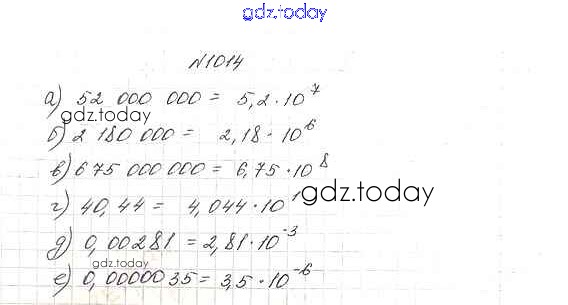 gdz.today
№1014
а) 52 000 000 = 5,2·10⁷
gdz.today
б) 2 180 000 = 2,18·10⁶
в) 675 000 000 = 6,75·10⁸
г) 40,44 = 4,044·10¹
gdz.today
д) 0,00281 = 2,81·10⁻³
е) 0,0000035 = 3,5·10⁻⁶